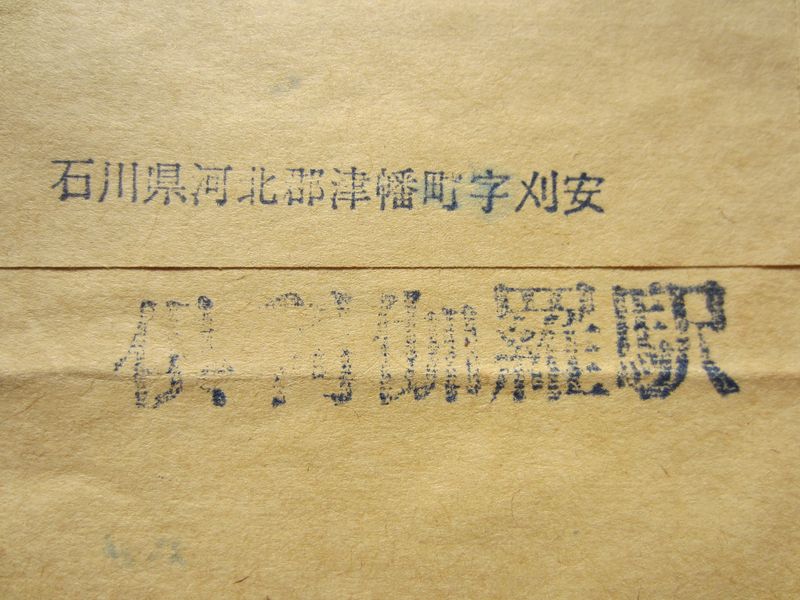 石川県河北郡津幡町字刈安
倶利伽羅駅